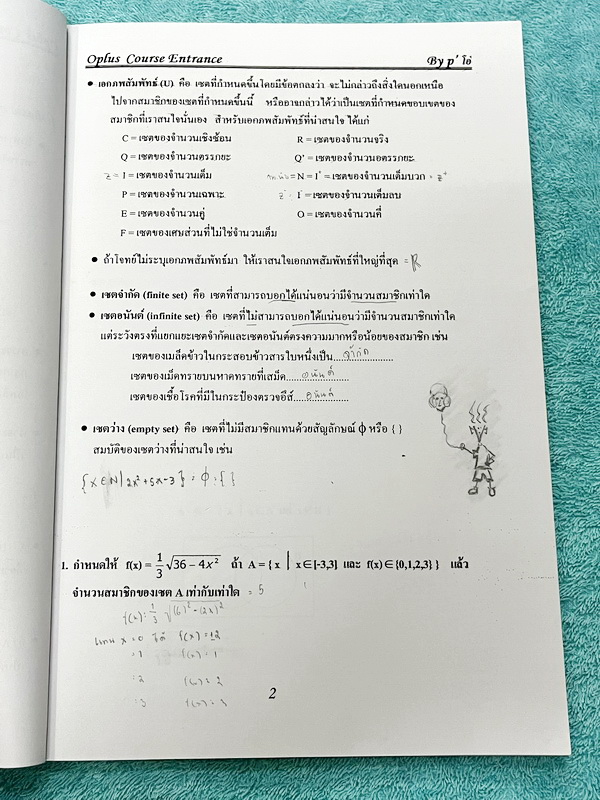 Oplus Course Entrance By p' โอ๋
• เอกภพสัมพัทธ์ (U) คือ เซตที่กำหนดขึ้นโดยมีข้อตกลงว่า จะไม่กล่าวถึงสิ่งใดนอกเหนือ
ไปจากสมาชิกของเซตที่กำหนดขึ้นนี้ หรืออาจกล่าวได้ว่าเป็นเซตที่กำหนดขอบเขตของ
สมาชิกที่เราสนใจนั่นเอง สำหรับเอกภพสัมพัทธ์ที่น่าสนใจ ได้แก่
C = เซตของจำนวนเชิงซ้อน R = เซตของจำนวนจริง
Q = เซตของจำนวนตรรกยะ Q' = เซตของจำนวนอตรรกยะ
Z = I = เซตของจำนวนเต็ม = N = I⁺ = เซตของจำนวนเต็มบวก = Z⁺
P = เซตของจำนวนเฉพาะ Z⁻ I⁻ = เซตของจำนวนเต็มลบ
E = เซตของจำนวนคู่ O = เซตของจำนวนคี่
F = เซตของเศษส่วนที่ไม่ใช่จำนวนเต็ม
• ถ้าโจทย์ไม่ระบุเอกภพสัมพัทธ์มา ให้เราสนใจเอกภพสัมพัทธ์ที่ใหญ่ที่สุด = R
• เซตจำกัด (finite set) คือ เซตที่สามารถบอกได้แน่นอนว่ามีจำนวนสมาชิกเท่าใด
• เซตอนันต์ (infinite set) คือ เซตที่ไม่สามารถบอกได้แน่นอนว่ามีจำนวนสมาชิกเท่าใด
แต่ระวังตรงที่แยกแยะเซตจำกัดและเซตอนันต์ตรงความมากหรือน้อยของสมาชิก เช่น
เซตของเมล็ดข้าวในกระสอบข้าวสารใบหนึ่งเป็น....จำกัด............
เซตของเม็ดทรายบนหาดทรายที่เสม็ด....อนันต์............
เซตของเชื้อโรคที่มีในกระป๋องตรวจอึส์....อนันต์............
• เซตว่าง (empty set) คือ เซตที่ไม่มีสมาชิกแทนด้วยสัญลักษณ์ ϕ หรือ { }
สมบัติของเซตว่างที่น่าสนใจ เช่น
{x ∈ N | 2x² + 5x - 3} = ϕ = { }
1. กำหนดให้ f(x) = 1/3 √(36 − 4x²) ถ้า A = { x | x ∈ [-3,3] และ f(x) ∈ {0,1,2,3} } แล้ว
จำนวนสมาชิกของเซต A เท่ากับเท่าใด = 5
f(x) = 1/3 √((6)² - (2x)²)
แทน x = 0 ได้ f(x) = 12
= 1 f(x) = 1
= 2 f(x) = 2
= 3 f(x) = 3
2